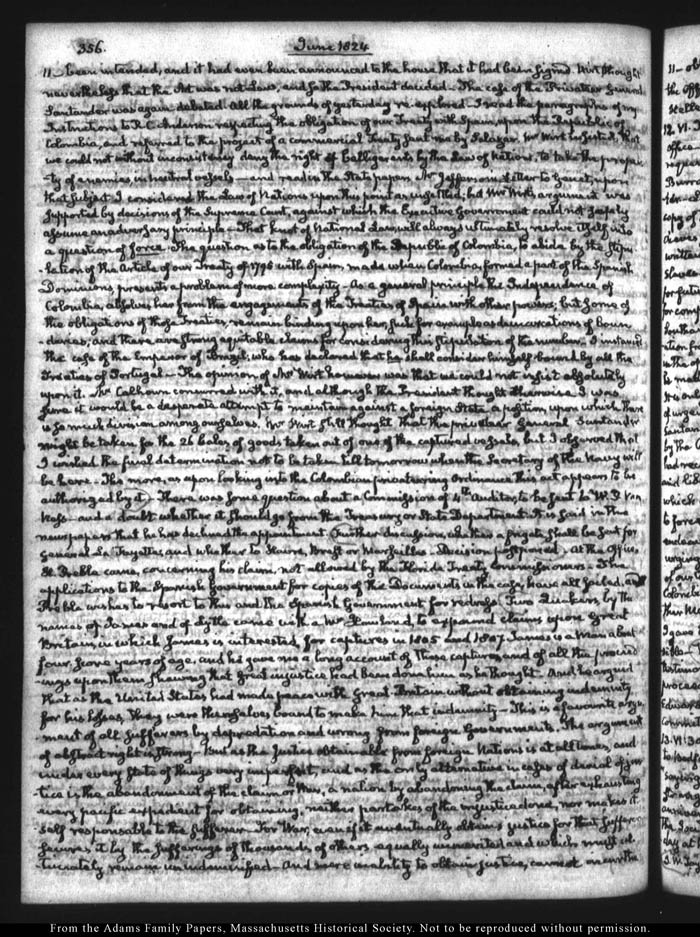 356.
June 1824
11. been intended, and it had even been announced to the house that it had been signed. Wirt thought
nevertheless that the Act was not Law, and so the President decided. The case of the Privateer General
Santander was again debated. All the grounds of yesterday re-explored. I read the paragraphs of my
Instructions to R. C. Anderson respecting the obligation of our Treaty with Spain, upon the Republic of
Colombia, and referred to the project of a commercial Treaty sent me by Salazar. Mr Wirt insisted, that
we could not without inconsistency deny the right of belligerents by the Law of Nations, to take the proper
-ty of enemies, in neutral vessels — and read in the State papers Mr Jefferson's Letter to Genet, upon
that subject. I considered the Law of Nations upon this point as unsettled, but Mr Wirt's argument was
supported by decisions of the Supreme Court, against which the Executive Government could not safely
assume an adversary principle. That knot of National Law, will always ultimately resolve itself into
a question of force. The question as to the obligation of the Republic of Colombia, to abide by the stipu
-lation of the Article of our Treaty of 1795 with Spain, made when Colombia formed a part of the Spanish
Dominions presents a problem of more complexity. As a general principle the Independence of
Colombia, absolves her from the engagements of the Treaties of Spain with other powers; but some of
the obligations of those Treaties remain binding upon her, such for example as demarcations of boun
-daries, and there are strong equitable claims for considering this stipulation of the number. I instanced
the case of the Emperor of Brazil, who has declared that he shall consider himself bound by all the
Treaties of Portugal. The opinion of Mr Wirt however was that we could not insist absolutely
upon it. Mr Calhoun concurred with it, and although the President thought otherwise I was
sure it would be a desperate attempt to maintain against a foreign State a position upon which there
is so much division among ourselves. Mr Wirt still thought that the privateer General Santander
might be taken for the 26 bales of goods taken out of one of the captured vessels, but I observed that
I wished the final determination not to be taken till tomorrow when the Secretary of the Navy will
be here. The more, as upon looking into the Colombian privateering Ordinance this act appears to be
authorized by it. There was some question about a Commission of 4th Auditor, to be sent to W. P. Van
Ness — and a doubt whether it should go from the Treasury or State Department. It is said in the
newspapers that he has declined the appointment. Further discussion, whether a frigate shall be sent for
General La Fayette, and whether to Havre, Brest or Marseilles. Decision postponed. At the Office,
H. Preble came, concerning his claim, not allowed by the Florida Treaty Commissioners. The
applications to the Spanish Government for copies of the Documents in the case, have all failed, and
Preble wishes to resort to this and the Spanish Government for redress. Two Quakers, by the
names of James and of Lytle came with a Mr to expound claims upon Great
Britain, in which James is interested, for captures in 1805 and 1807. James is a man about
four score years of age, and he gave me a long account of these captures, and of all the proceed
-ings upon them, shewing that great injustice had been done him as he thought. And he argued
that as the United States had made peace with Great-Britain without obtaining indemnity
for his losses, they were themselves bound to make him that indemnity. This is a favourite argu-
ment of all sufferers by depredation and wrong from foreign Governments. The argument
of abstract right is strong. But as the Justice obtainable from foreign Nations is at all times, and
under every State of things very imperfect, and as the only alternative in cases of denial of jus
tice is the abandonment of the claim or War, a nation by abandoning the claim, after exhausting
every pacific expedient for obtaining, neither partakes of the injustice done, nor makes it
self responsible to the sufferer. For War, even if it eventually obtains justice for that sufferer
secures it by the sufferings of thousands of others equally unmerited and which must ul
-timately remain unindemnified. And mere inability to obtain justice, cannot incur the
From the Adams Family Papers, Massachusetts Historical Society. Not to be reproduced without permission.